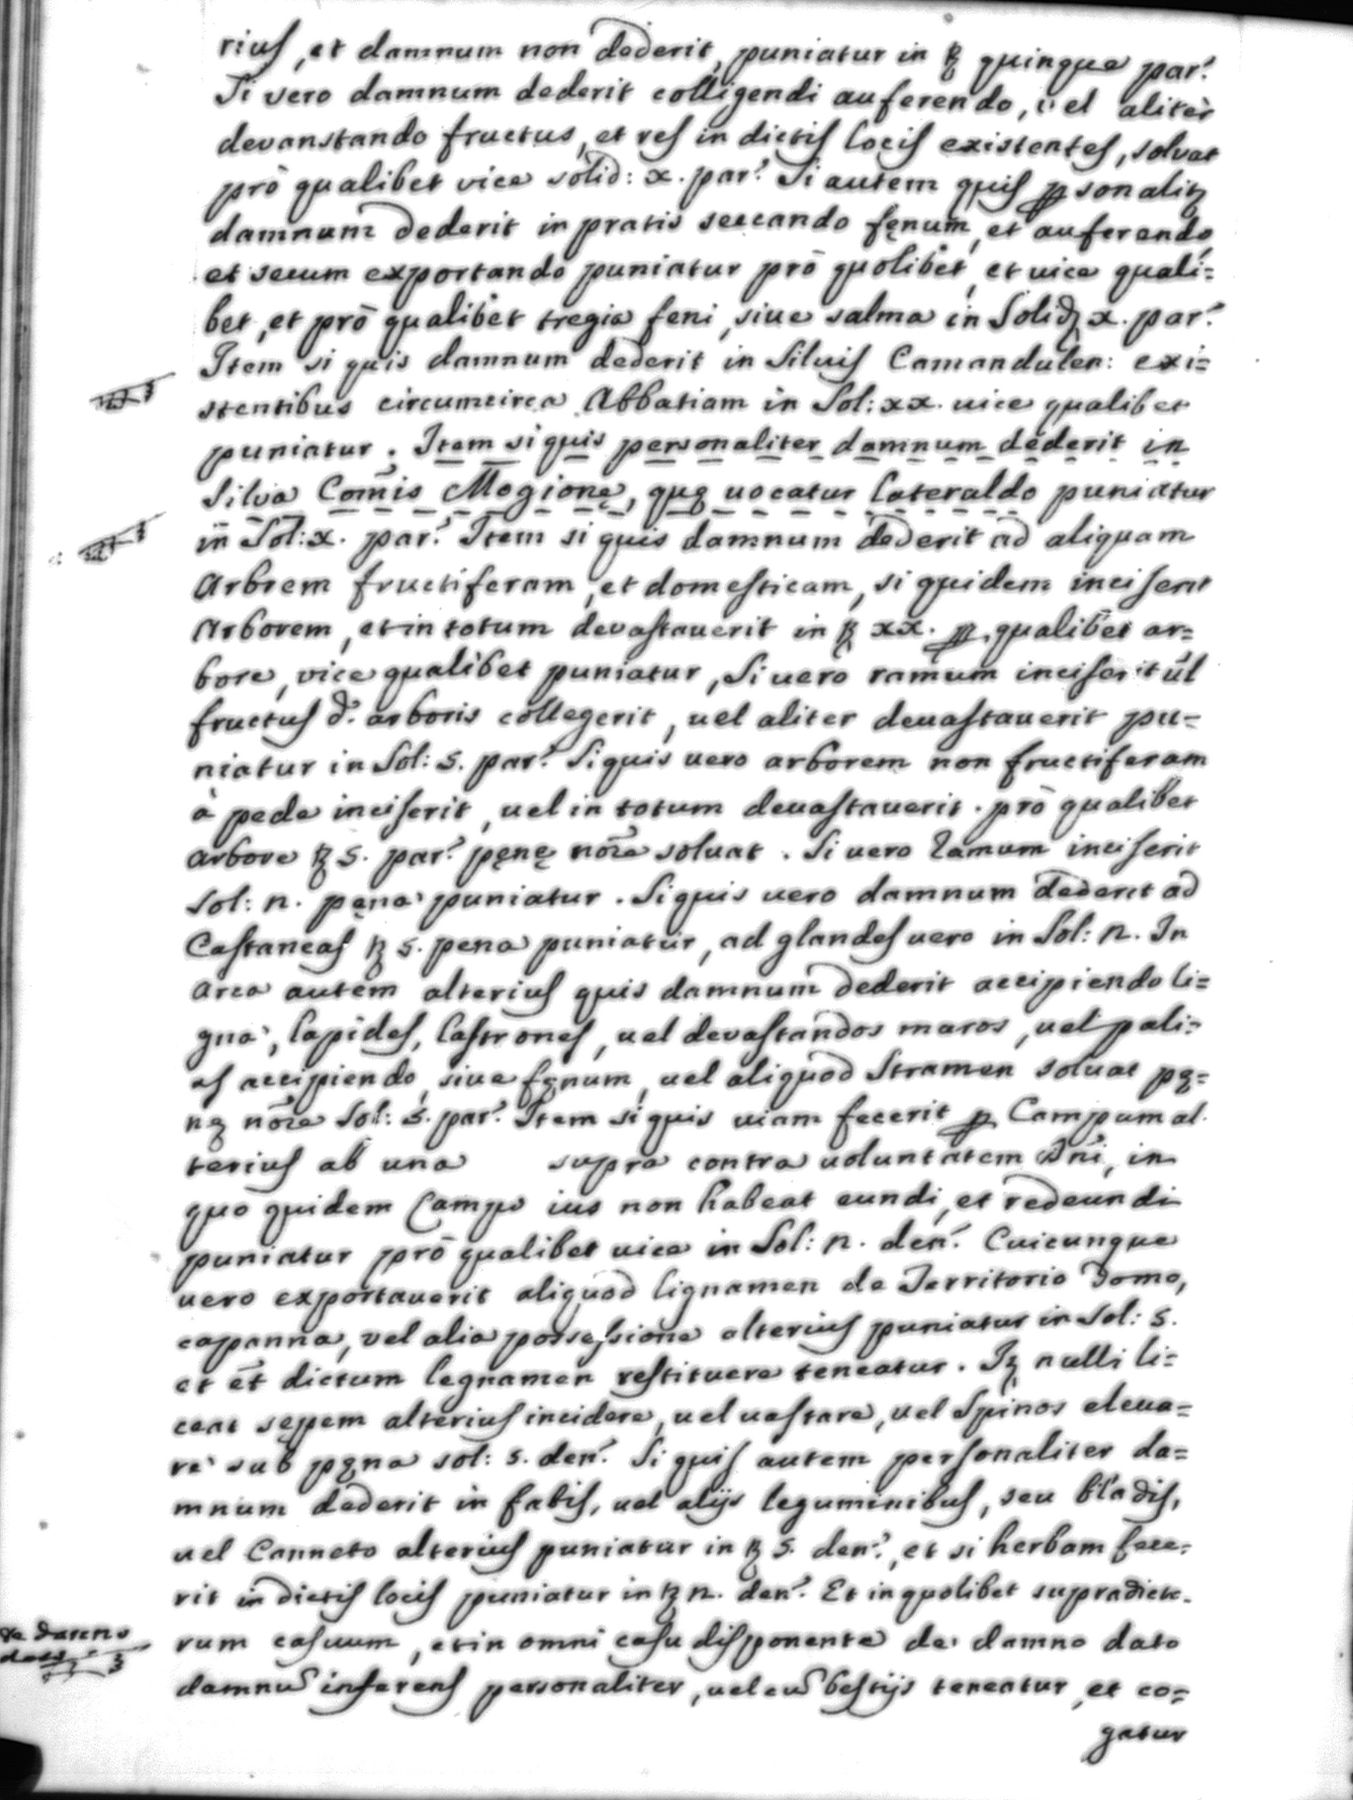 rius, et damnum non dederit, puniatur in ℔ quinque par:
Si vero damnum dederit colligendi auferendo, vel aliter
devanstando fructus, et res in dictis locis existentes, solvat
prò qualibet vice solid: x. par: Si autem quis ꝑsonalit
damnum dederit in pratis seccando fęnum, et auferendo,
et secum exportando puniatur prò quolibet, et vice quali=
bet, et prò qualibet tregia feni, siue salma in Solid x. par:
Item si quis damnum dederit in Siluis Camandulen: exi=
stentibus circumcirca Abbatiam in Sol: xx. vice qualibet
puniatur. Item si quis personaliter damnum dederit in
Silva Com̃is Mogionę, quę uocatur Lateraldo puniatur
in Sol: x. par: Item si quis damnum dederit ad aliquam
Arbrem fructiferam, et domesticam, si quidem inciserit
Arborem, et in totum devastauerit in ℔ xx. ꝑ qualibet ar=
bore, vice qualibet puniatur, Si uero ramum inciserit ul̃
fructus d: arboris collegerit, uel aliter deuastauerit pu=
niatur in Sol: 5. par: Si quis uero arborem non fructiferam
à pede inciserit, uel in totum deuastauerit. prò qualibet
arbore ℔ 5. par: pęnę nõe soluat. Si uero Ramum inciserit
Sol: n. pęna puniatur. Si quis uero damnum dederit ad
Castaneas ℔ 5. pena puniatur, ad glandes uero in Sol: n. In
area autem alterius quis damnum dederit accipiendo li=
gna, lapides, lastrones, uel devastandos muros, uel pali=
as accipiendo, siue fęnum, uel aliquod Stramen soluat pę=
nę nõe Sol: 5. par: Item si quis uiam fecerit ꝑ Campum al
terius ab una supra contra uoluntatem Dñi, in
quo quidem Campo ius non habeat eundi, et redeundi
puniatur prò qualibet uice in Sol: n. den: Cuicunque
uero exportauerit aliquod lignamen de Territorio Domo,
capanna, vel alia possessione alterius puniatur in Sol: 5.
et et̃ dictum legnamen restituere teneatur. It nulli li=
ceat sepem alterius incidere, uel uastare, uel Spinos eleua=
re sub pęna sol: 5. den: Si quis autem personaliter da=
mnum dederit in fabis, uel alijs leguminibus, seu bladis,
uel Canneto alterius puniatur in ℔ 5. den:, et si herbam fece=
rit in dictis locis puniatur in ℔ n. den: Et in quolibet supradicto=
rum casuum, et in omni casu disponente de damno dato
damnũ inferens personaliter, uel cũ bestijs teneatur, et co=
gatur